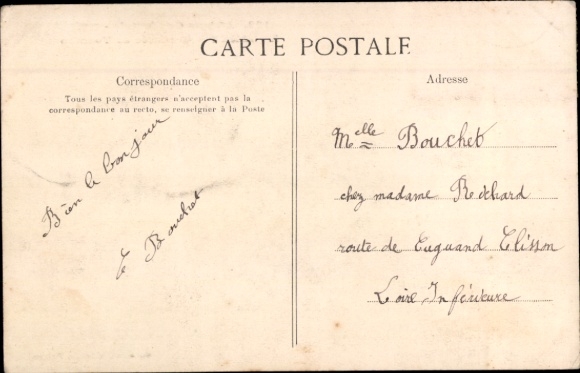 CARTE POSTALE
Correspondance
Tous les pays étrangers n'acceptent pas la
correspondance au recto, se renseigner à la Poste
Bien le bonjour
E Bouchet
Adresse
Melle Bouchet
chez madame Richard
route de Cuguand Clisson
Loire Inférieure